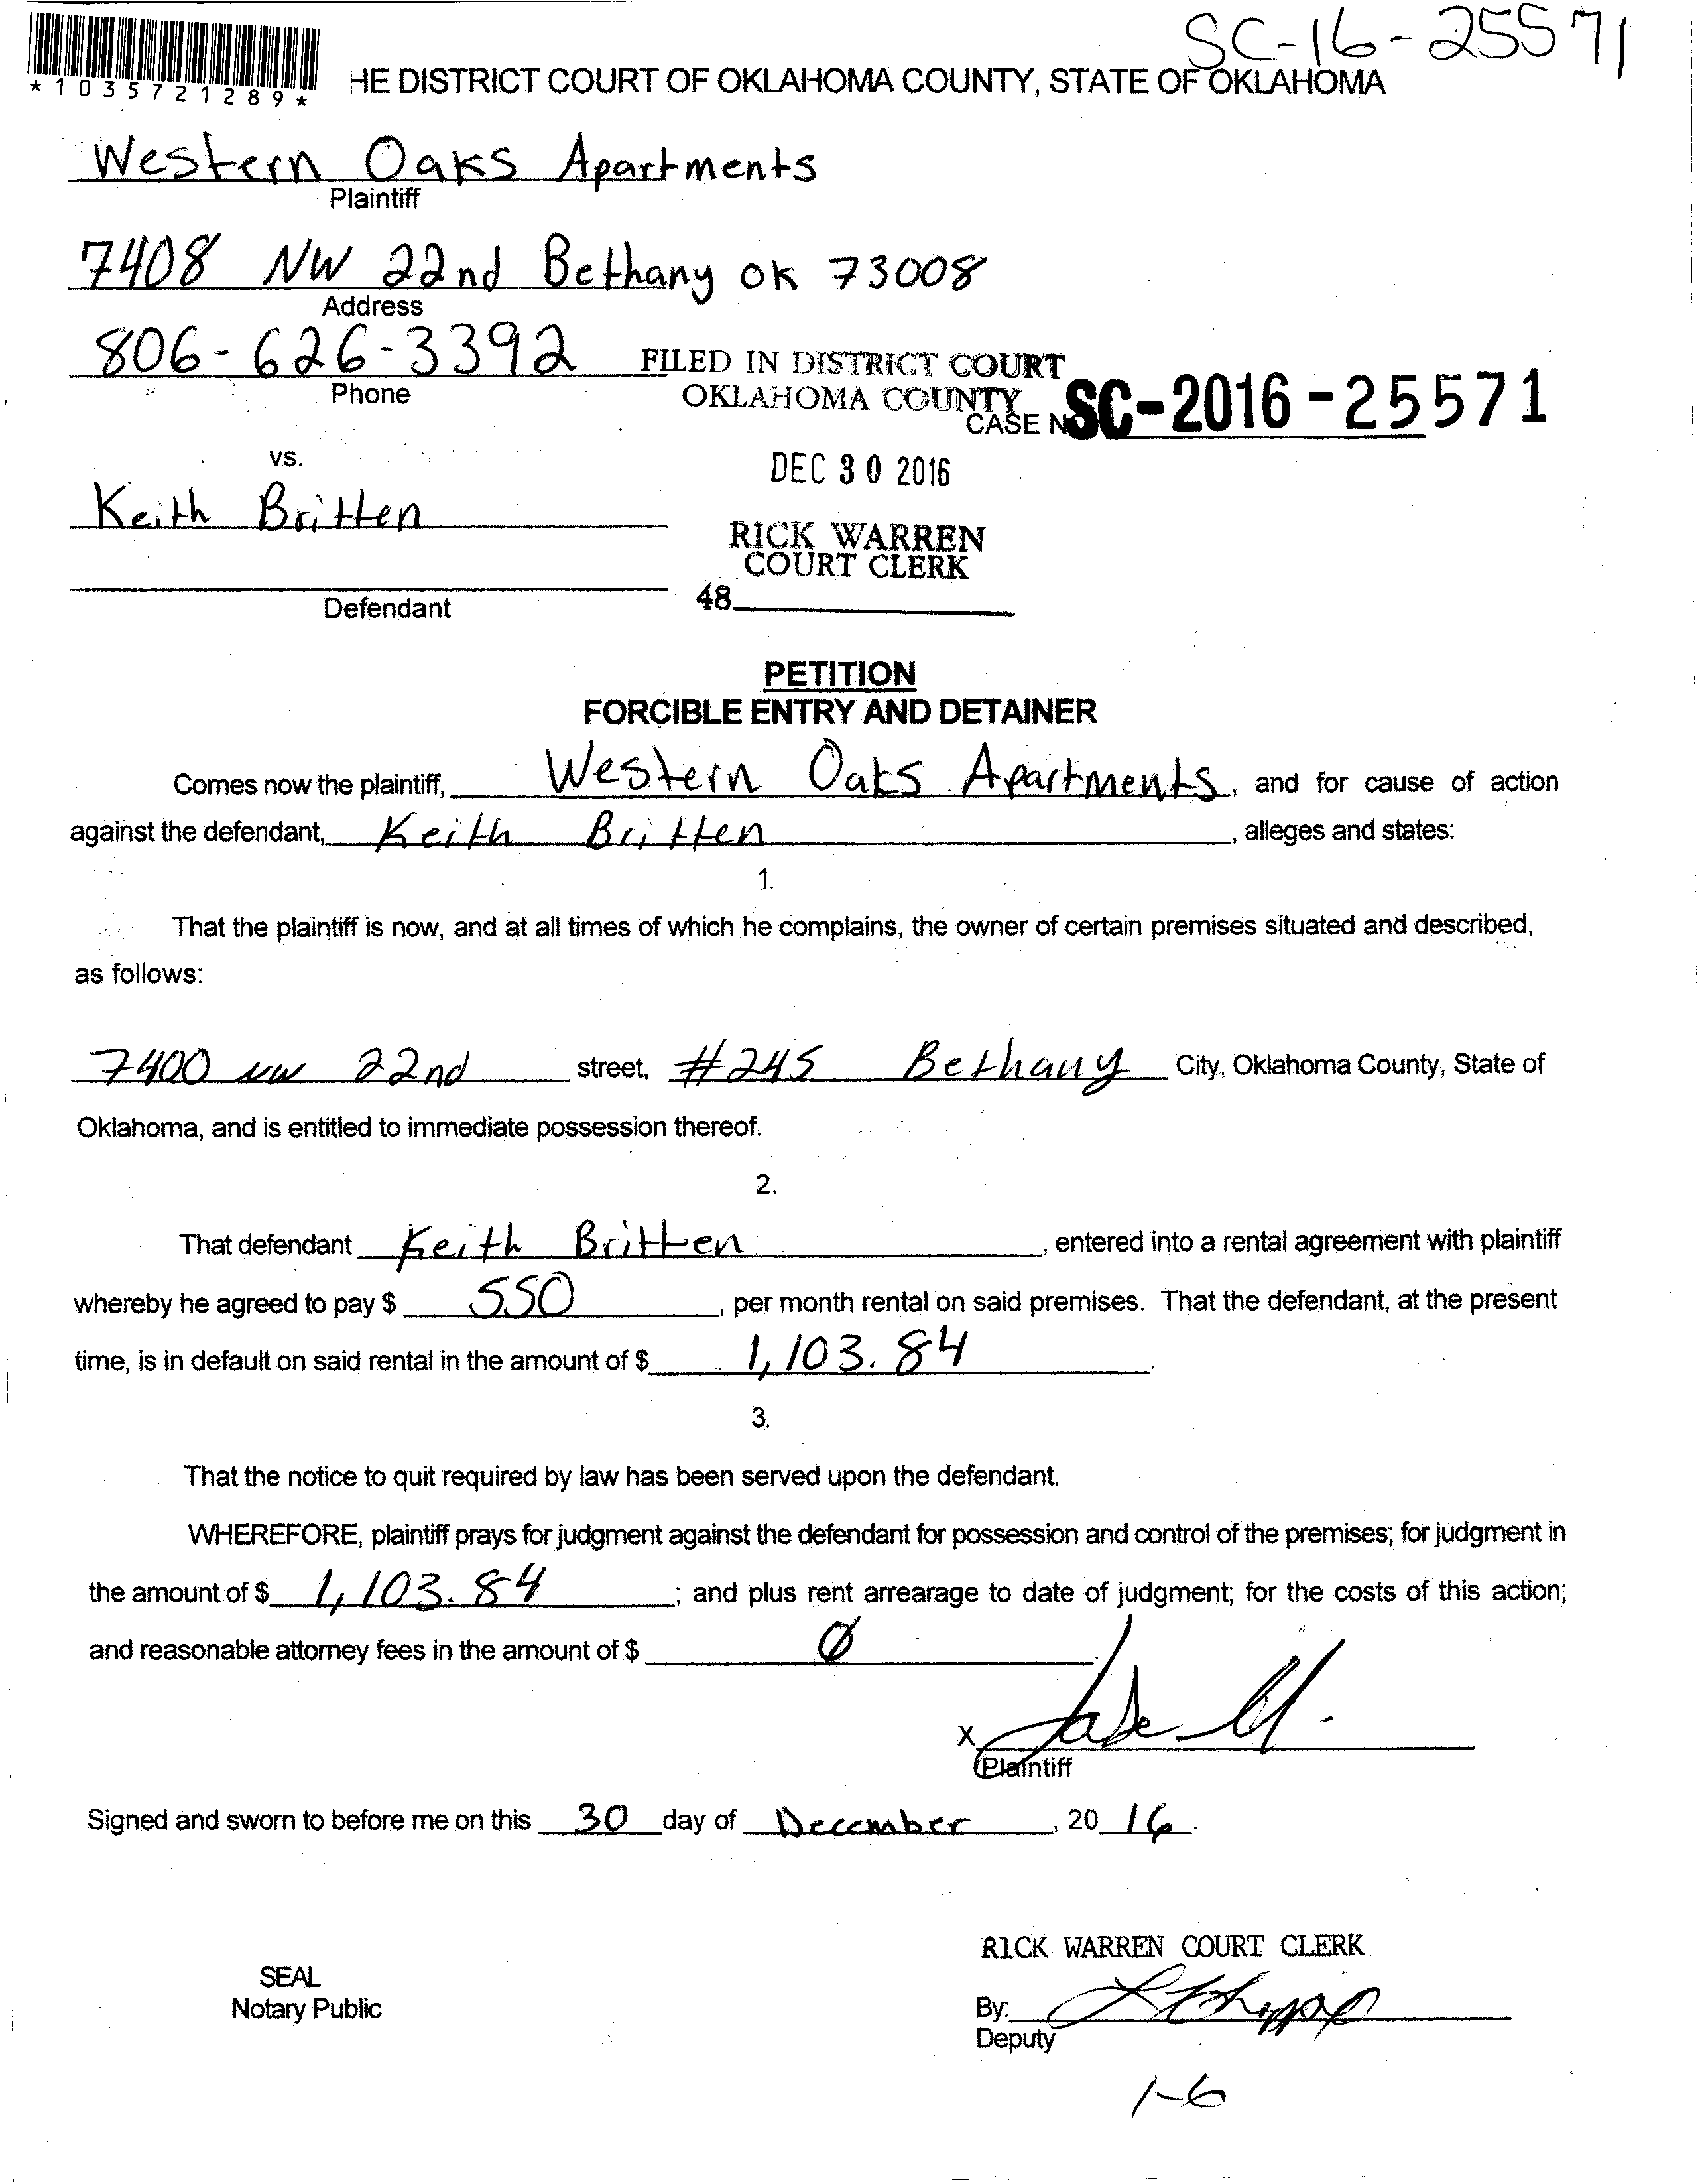 SC-16-25571
*1035721289*
HE DISTRICT COURT OF OKLAHOMA COUNTY, STATE OF OKLAHOMA
Western Oaks Apartments
Plaintiff
7408 NW 22nd Bethany OK 73008
Address
806-626-3392
Phone
FILED IN DISTRICT COURT
OKLAHOMA COUNTY
CASE N SC-2016-25571
vs.
DEC 30 2016
Keith Britten
RICK WARREN
COURT CLERK
48
Defendant
PETITION
FORCIBLE ENTRY AND DETAINER
Comes now the plaintiff, Western Oaks Apartments, and for cause of action
against the defendant, Keith Britten, alleges and states:
1.
That the plaintiff is now, and at all times of which he complains, the owner of certain premises situated and described,
as follows:
7400 NW 22nd street, #245 Bethany City, Oklahoma County, State of
Oklahoma, and is entitled to immediate possession thereof.
2.
That defendant Keith Britten, entered into a rental agreement with plaintiff
whereby he agreed to pay $ 550, per month rental on said premises. That the defendant, at the present
time, is in default on said rental in the amount of $ 1,103.84.
3.
That the notice to quit required by law has been served upon the defendant.
WHEREFORE, plaintiff prays for judgment against the defendant for possession and control of the premises; for judgment in
the amount of $ 1,103.84; and plus rent arrearage to date of judgment; for the costs of this action;
and reasonable attorney fees in the amount of $ Ø.
X
Plaintiff
Signed and sworn to before me on this 30 day of December, 20 16.
RICK WARREN COURT CLERK
SEAL
Notary Public
By:
Deputy
1-6